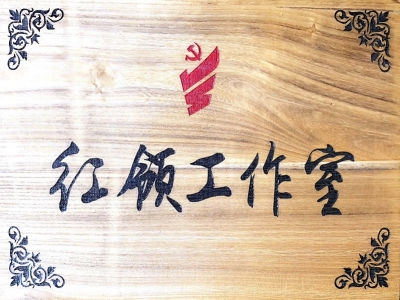 红领工作室